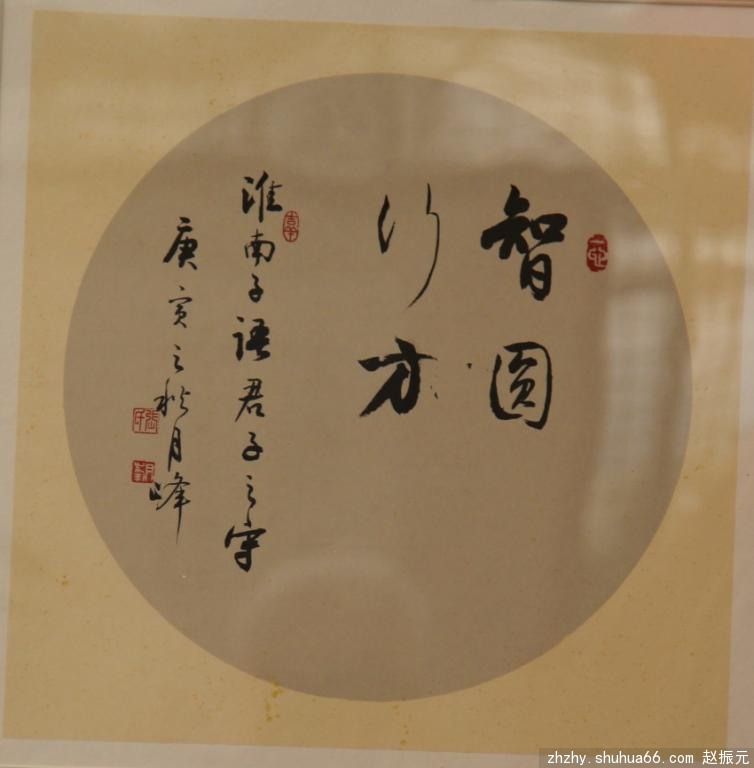 智圆
行方
淮南子语君子之守
庚寅之秋月峰
zhzhy.shuhua66.com 赵振元